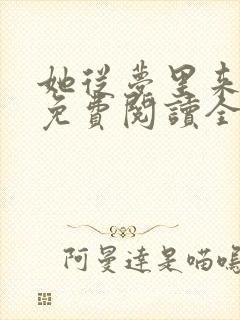 她從夢里來
免費閱讀全
阿曼達是喵嗚